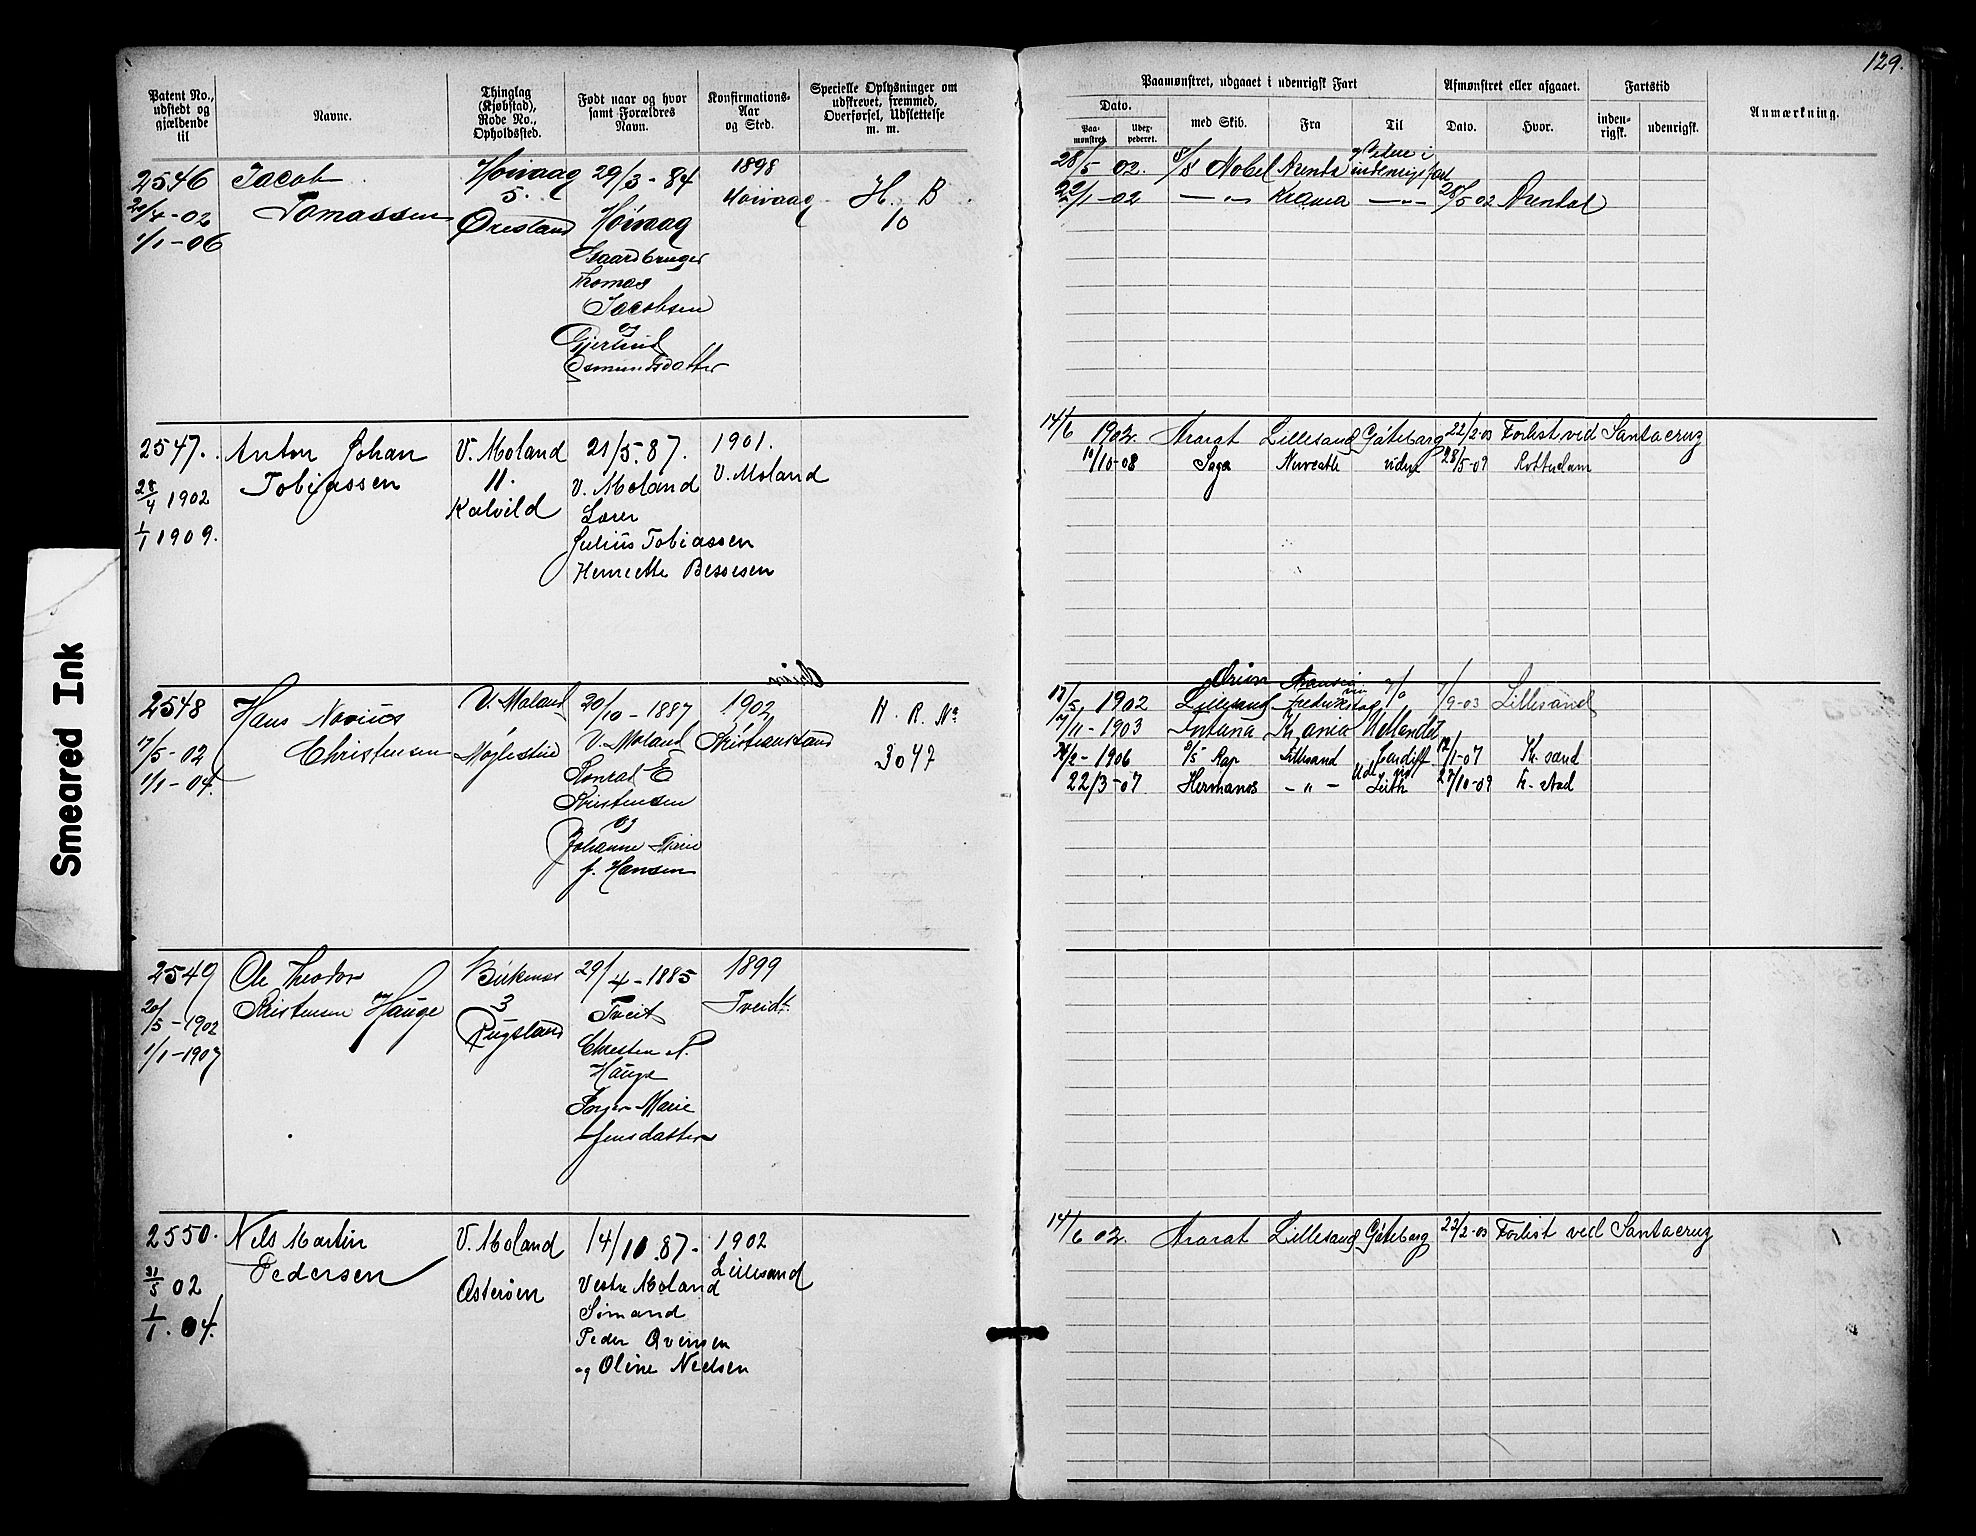 129.
Patent No., udstedt og gjældende til
Navne.
Thinglag (Kjøbstad), Rode No., Opholdssted.
Født naar og hvor samt Forældres Navn.
Konfirmations-Aar og Sted.
Specielle Oplysninger om udskrevet, fremmed, Overførsel, Udslettelse m. m.
Paamønstret, udgaaet i udenrigsk Fart
Dato.
Paa-mønstret.
Udex-pederet.
med Skib.
Fra
Til
Afmønstret eller afgaaet.
Dato.
Hvor.
Fartstid
inden-rigsk.
udenrigsk.
Anmærkning.
2546
20/4-02
1/1-06
Jacob
Tomassen
Høivaag
5.
Ørestand
29/3-84
Høivaag
Gaardbruger
Thomas
Jacobsen
og
Gjerluid
Osmundsdatter
1898
Høivaag
H. B
10
28/5 02. Nobel Arendal indenrigsfart
22/1-02 — „ — Krania — „ — 28/5 02 Arendal
2547.
28/4 1902
1/1 1909.
Anton Johan
Tobiassen
V. Moland
11.
Kalvild
21/5.87.
V. Moland
Lærer
Julius Tobiassen
Henriette Bessesen
1901.
V. Moland
14/6 1902. Ararat Lillesand Gøteborg 22/2-03 Forlist ved Santacruz
10/10-08 Saga videre 28/5-09 Rotterdam
2548
17/5-02
1/1-04.
Hans Navius
Christensen
V. Moland
Møglestue
20/10-1887
V. Moland
Konrad E
Kristensen
og
Johanne Marie
f. Hansen
1902
Kristianssand
Orion
H. R. No
3047
Orion
13/5 1902 Lillesand Fredrikstad 1/9-03 Lillesand
17/11-1903 Fortuna Krania Udlandet
28/2-1906 Rap Lillesand Cardiff 12/1-07 Kr. sand
22/3-07 Hermanos — „ — Leith 27/10-09 Fr. stad
2549
20/5-1902
1/1-1907
Ole Theodor
Kristensen Hauge
Birkenes
3
Rugsland
29/4-1885
Tveit
Chresten N.
Hauge
Inger Marie
Jensdatter
1899
Tveidt.
2550.
31/5 02
1/1.04.
Nels Martin
Pedersen
V. Moland
Østerøen
14/10.87.
Vestre Moland
Sømand
Peder Evensen
og Oline Nielsen
1902
Lillesand
14/6 02. Ararat Lillesand Gøteborg 22/2-03 Forlist ved Santacruz
Smeared Ink